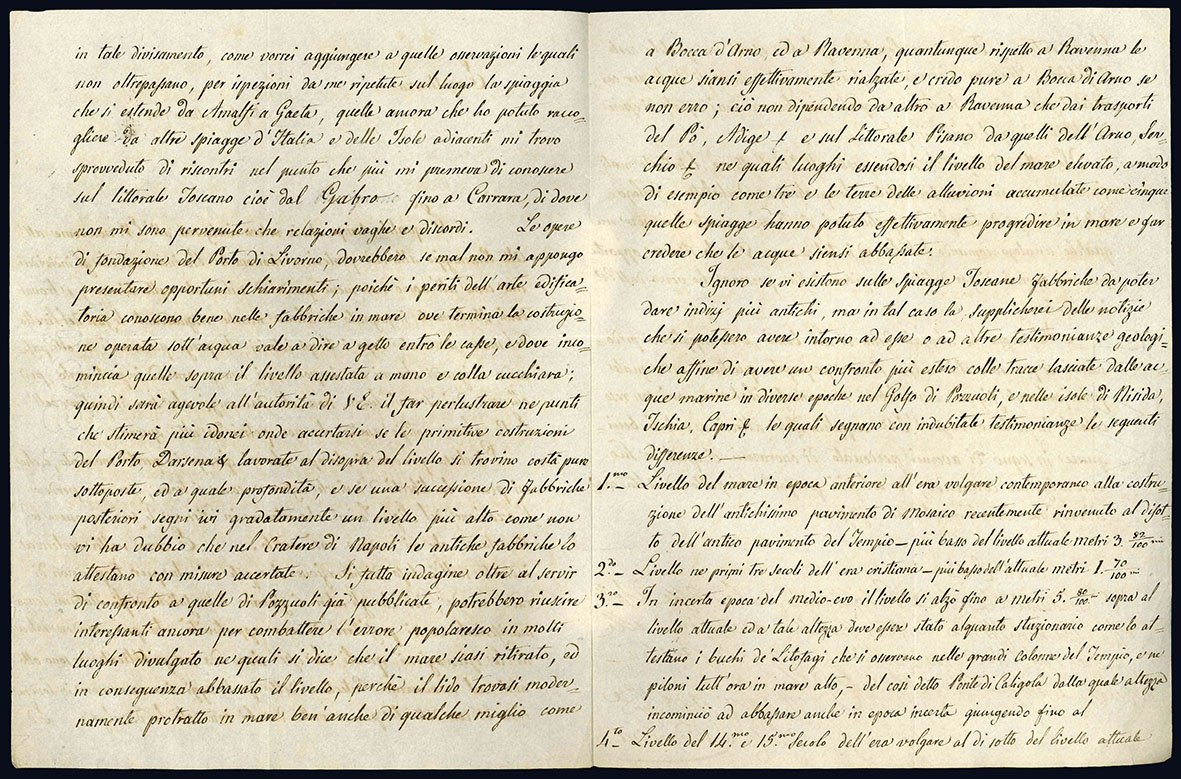 in tale divisamento, come vorrei aggiungere a quelle osservazioni le quali
non oltrepassano, per ispezioni da me ripetute sul luogo la spiaggia
che si estende da Amalfi a Gaeta, quelle ancora che ho potuto racco=
gliere da altre spiagge d'Italia e delle Isole adiacenti mi trovo
sprovveduto di riscontri nel punto che più mi premeva di conoscere
sul littorale Toscano cioè dal Gabro fino a Carrara, di dove
non mi sono pervenute che relazioni vaghe e discordi. Le opere
di fondazione del Porto di Livorno dovrebbero se mal non mi appongo
presentare opportuni schiarimenti; poichè i periti dell'arte edifica=
toria conoscono bene nelle fabbriche in mare ove termina la costruzio=
ne operata sott'acqua vale a dire a getto entro le casse, e dove inco=
mincia quelle sopra il livello assestata a mano e colla cucchiara;
quindi sarà agevole all'autorità di V.E. il far perlustrare ne punti
che stimerà più idonei onde accertarsi se le primitive costruzioni
del Porto Darsena & lavorate al disopra del livello si trovino costà pure
sottoposte, ed a quale profondità, e se una successione di fabbriche
posteriori segni ivi gradatamente un livello più alto come non
vi ha dubbio che nel Cratere di Napoli le antiche fabbriche lo
attestano con misure accertate Si fatta indagine oltre al servir
di confronto a quelle di Pozzuoli già pubblicate, potrebbero riuscire
interessanti ancora per combattere l'errore popolaresco in molti
luoghi divulgato ne quali si dice che il mare siasi ritirato, ed
in conseguenza abbassato il livello, perchè il lido trovasi moder=
namente protratto in mare ben'anche di qualche miglio come
a Bocca d'Arno ed a Ravenna, quantunque rispetto a Ravenna le
acque siansi effettivamente rialzate, e credo pure a Bocca di Arno se
non erro; ciò non dipendendo da altro a Ravenna che dai trasporti
del Pò, Adige & e sul Littorale Pisano da quelli dell'Arno, Ser=
chio & ne quali luoghi essendosi il livello del mare elevato, a modo
di esempio come tre e le terre delle alluvioni accumulate come cinque
quelle spiagge hanno potuto effettivamente progredire in mare e far
credere che le acque siensi abbassate.
Ignoro se vi esistono sulle Spiagge Toscane fabbriche da poter
dare indizj più antichi, ma in tal caso la supplicherei delle notizie
che si potessero avere intorno ad esse o ad altre testimonianze geologi=
che affine di avere un confronto più esteso colle tracce lasciate dalle ac=
que marine in diverse epoche nel Golfo di Pozzuoli, e nelle isole di Nisida,
Ischia, Capri & le quali segnano con indubitate testimonianze le seguenti
differenze. —
1.mo — Livello del mare in epoca anteriore all'era volgare contemporanco alla costru=
zione dell'antichissimo pavimento di Mosaico recentemente rinvenuto al disot=
to dell'antico pavimento del Tempio — più basso del livello attuale metri 3. 82/100
2.do — Livello ne primi tre secoli dell'era cristiana — più basso dell'attuale metri 1. 70/100
3.zo — In incerta epoca del medio-evo il livello si alzò fino a metri 5. 80/100 sopra al
livello attuale ed a tale altezza deve essere stato alquanto stazionario come lo at=
testano i buchi de Litofagi che si osservano nelle grandi colonne del Tempio, e ne
piloni tutt'ora in mare alto, — del così detto Ponte di Caligola dalla quale altezza
incominciò ad abbassare anche in epoca incerta giungendo fino al
4.to — Livello del 14.mo e 15.mo Secolo dell'era volgare al di sotto del livello attuale